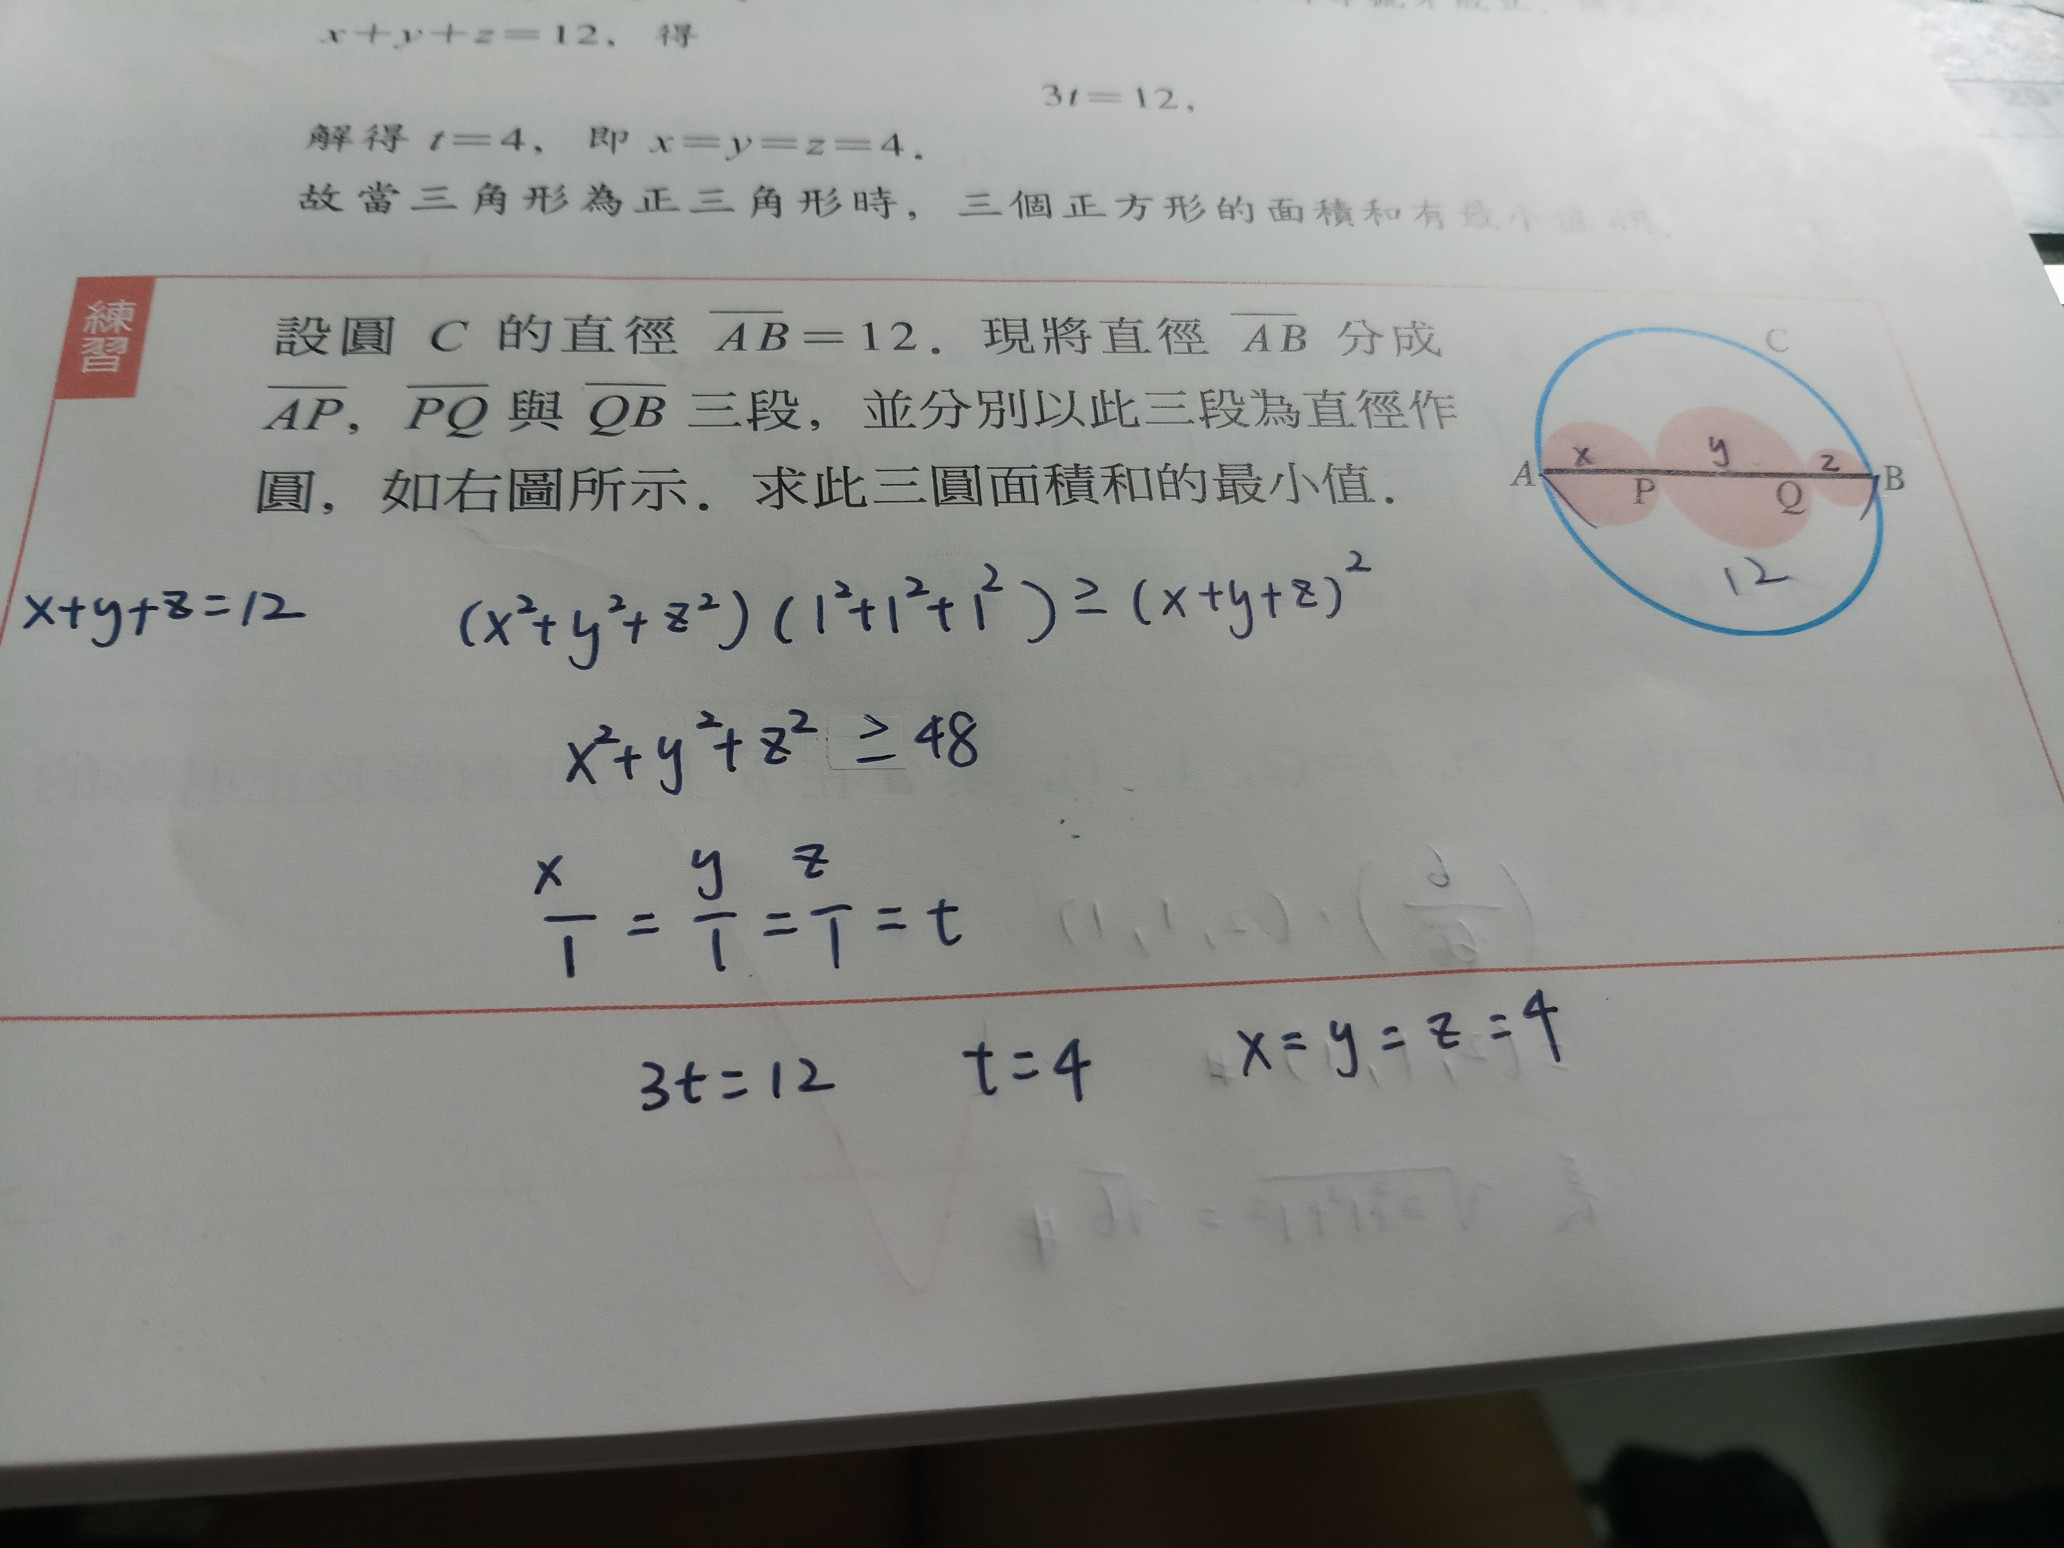 x+y+z=12, 得
3t=12,
解得 t=4, 即 x=y=z=4.
故當三角形為正三角形時, 三個正方形的面積和有最小值48.
練習
設圓 C 的直徑 AB=12. 現將直徑 AB 分成
AP, PQ 與 QB 三段, 並分別以此三段為直徑作
圓, 如右圖所示. 求此三圓面積和的最小值.
C
x y z
A P Q B
12
x+y+z=12 (x²+y²+z²)(1²+1²+1²)≥(x+y+z)²
x²+y²+z²≥48
x/1=y/1=z/1=t
3t=12 t=4 x=y=z=4